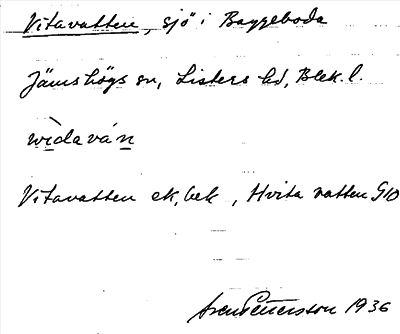 Vitavatten, sjö i Baggeboda
Jämshögs sn, Listers hd, Blek. l.
wìdavá̀n
Vitavatten ek, bek, Hvita vatten G10
Sven Pettersson 1936